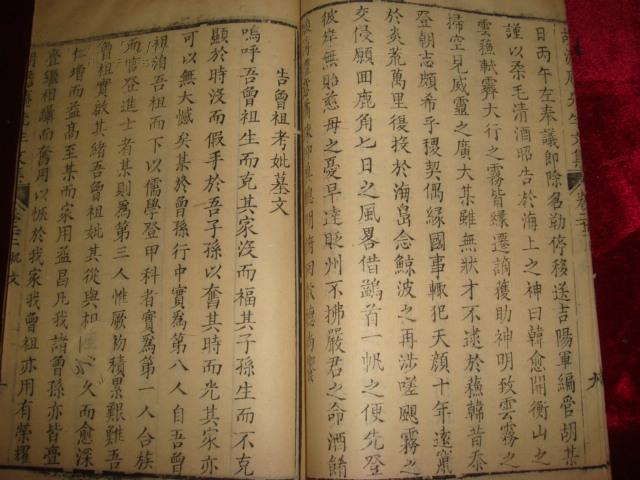 日丙午左奉議郎除名勒停移送吉陽軍編管胡某
謹以柔毛清酒昭告於海上之神曰韓愈開衡山之
雲蘇軾霽大行之霧皆緣遷謫獲助神明致雲霧之
掃空見威靈之廣大某雖無狀才不逮於蘇韓昔忝
登朝志頗希乎稷契偶緣國事輙犯天顔十年遠竄
於炎荒萬里復投於海島念鯨波之再涉嗟颶霧之
交侵願回鹿角七日之風畧借鷁首一帆之便先登
彼岸無貽慈母之憂早達貶州不拂嚴君之命酒餚
告曾祖考妣墓文
嗚呼吾曾祖生而克其家沒而福其子孫生而不克
顯於時沒而假手於吾子孫以奮其時而光其家亦
可以無大憾矣某於曾孫行中實爲第八人自吾曾
祖洎吾祖而下以儒學登甲科者實爲第一人合族
而官登進士者某則爲第三人惟厥幼積累艱難吾
曾祖實啟其緒吾曾祖妣其從與和 久而愈深
仁增而益高至某而家用益昌凡我諸曾孫亦皆疊
疊繼相躡而奮用以恢於我家我曾祖亦用有榮耀